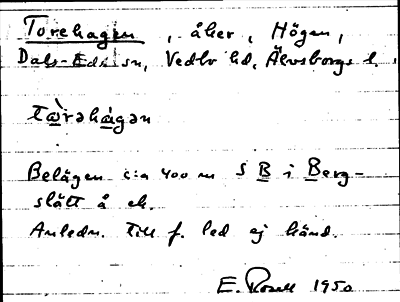 Torehagen, åker, Högen,
Dals-Eds sn, Vedbo hd, Älvsborgs l.
tàrəhágən
Belägen c:a 400 m S B i Berg-
slätt å ek.
Anledn. till f. led ej känd.
E. Rosell 1950